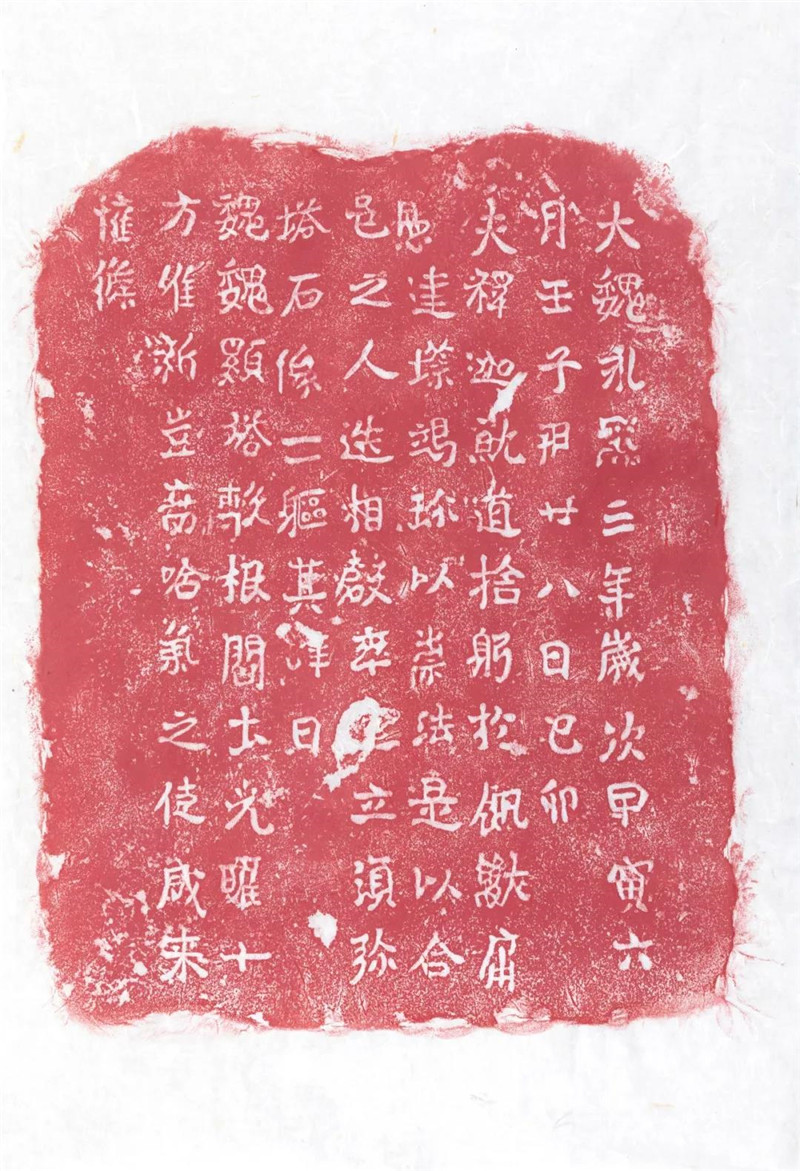 大魏永熙二年歲次甲寅六
月壬子朔廿八日己卯
夫釋迦就道捨躬於飢獸
達竭珎以崇法是以合
邑之人迭相啟率立須弥
塔石像一軀其詳曰
魏魏顯塔敷根閻土光曜十
方惟新豈啻哈氣之使咸来